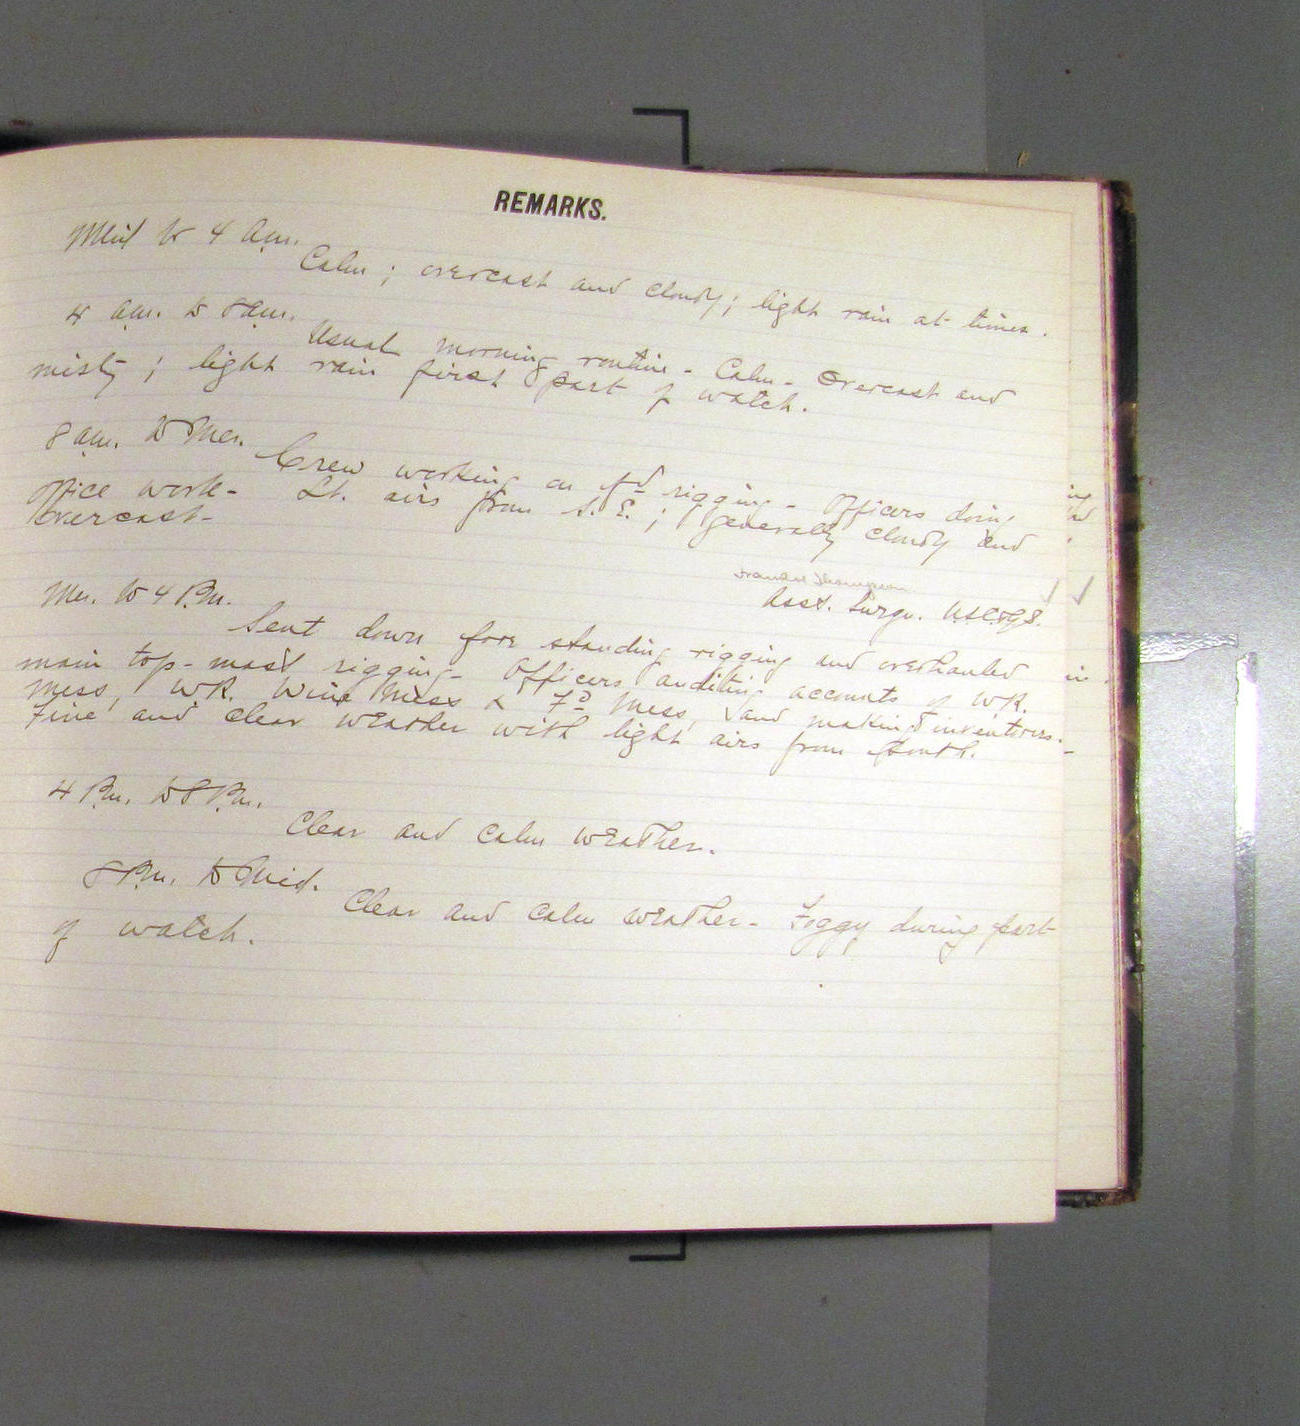 REMARKS.
Mid to 4 a.m.
Calm; overcast and cloudy; light rain at times.
4 a.m. to 8 a.m.
Usual morning routine - Calm - Overcast and
misty; light rain first part of watch.
8 a.m. to Mer.
Crew working on f'd rigging - Officers doing
office work - Lt. airs from S. E.; generally cloudy and
overcast -
Thompson
Asst. Surgn. USC&GS.
Mer. to 4 P.m.
Sent down fore standing rigging and overhauled
main top-mast rigging - Officers auditing accounts of WR.
Mess, WR. Wine Mess & F'd Mess, and making inventories.
Fine and clear weather with light airs from South.
4 P.m. to 8 P.m.
Clear and calm weather.
8 P.m. to Mid.
Clear and calm weather - Foggy during part
of watch.